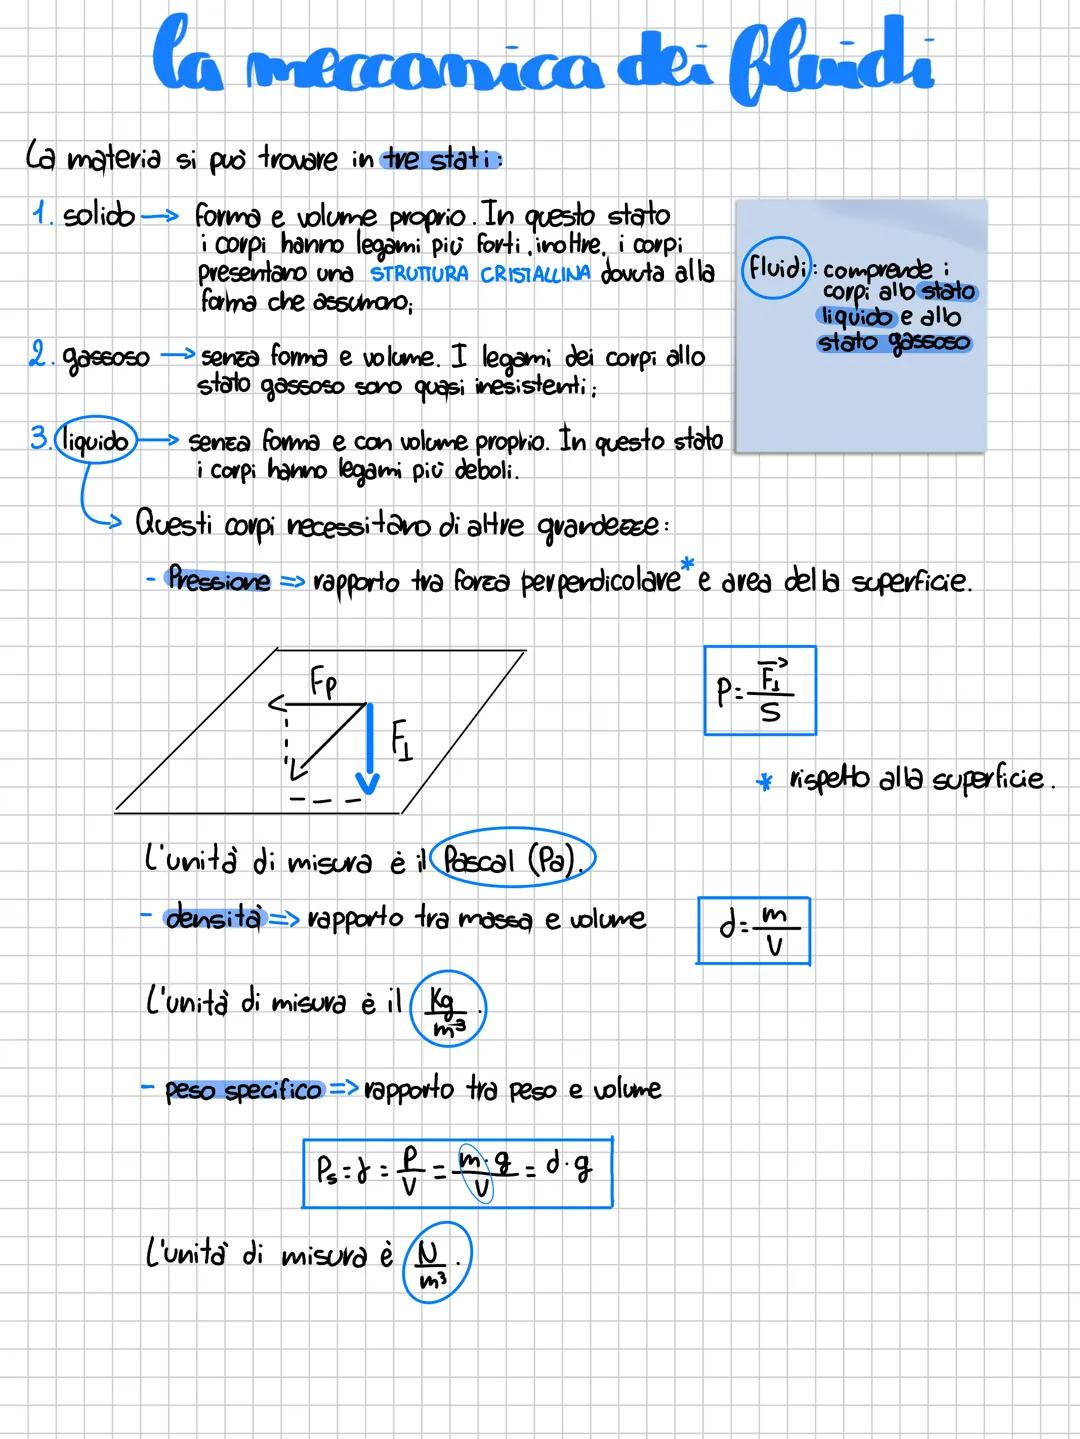 la meccanica dei fluidi
La materia si può trovare in tre stati:
1. solido → forma e volume proprio. In questo stato
i corpi hanno legami più forti, inoltre, i corpi
presentano una STRUTTURA CRISTALLINA dovuta alla
forma che assumono;
fluidi: comprende i
corpi allo stato
liquido e allo
stato gassoso
2. gassoso → senza forma e volume. I legami dei corpi allo
stato gassoso sono quasi inesistenti;
3. liquido → senza forma e con volume proprio. In questo stato
i corpi hanno legami più deboli.
Questi corpi necessitano di altre grandezze:
- Pressione => rapporto tra forza perpendicolare* e area della superficie.
Fp
F⊥
P = F⃗⊥ / S
* rispetto alla superficie.
L'unità di misura è il Pascal (Pa).
- densità => rapporto tra massa e volume
d = m / V
L'unità di misura è il Kg / m³.
- peso specifico => rapporto tra peso e volume
Ps = γ = P / V = m·g / V = d·g
L'unità di misura è N / m³.